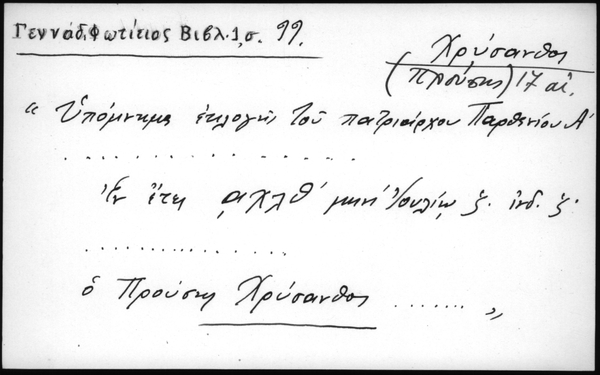 Γεννάδ. Φωτίειος Βιβλ. 1, σ. 99.
Χρύσανθος
(Προύσης) 17 αἰ.
“ Ὑπόμνημα ἐκλογῆς τοῦ πατριάρχου Παρθενίου Α'
. . . . . . . . . . . . . . . .
Ἐν ἔτει ͵αχλθ' μηνὶ Ἰουλίῳ ζ. ἰνδ. ζ.
. . . . . . . . . . . . .
ὁ Προύσης Χρύσανθος ....... „